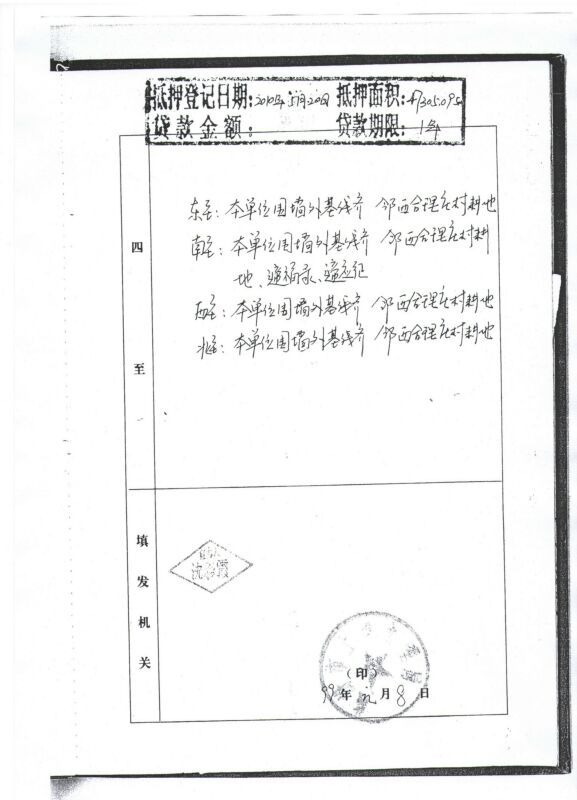 抵押登记日期:2010年5月20日 抵押面积:47305.095
贷款金额: 贷款期限:1年
四至
东至:本单位围墙外基线齐 邻西合理庄村耕地
南至:本单位围墙外基线齐 邻西合理庄村耕
地、
西至:本单位围墙外基线齐 邻西合理庄村耕地
北至:本单位围墙外基线齐 邻西合理庄村耕地
填发机关
(印)
99年 月8日